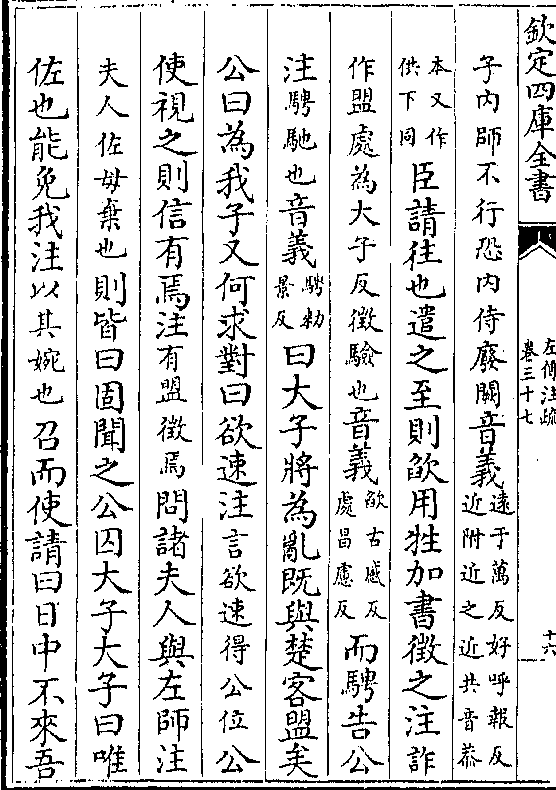 欽定四庫全書
左傳注疏
卷三十七
十六
子内師不行恐内侍廢闕音義
遠于萬反好呼報反
近附近之近共音恭
本又作
供下同
臣請往也遣之至則欿用牲加書徵之注詐
作盟處為大子反徵驗也音義
欿古感反
處昌慮反
而騁告公
注騁馳也音義
騁勑
景反
曰大子將為亂既與楚客盟矣
公曰為我子又何求對曰欲速注言欲速得公位公
使視之則信有焉注有盟徵焉問諸夫人與左師注
夫人佐母棄也則皆曰固聞之公囚大子大子曰唯
佐也能免我注以其婉也召而使請曰日中不來吾